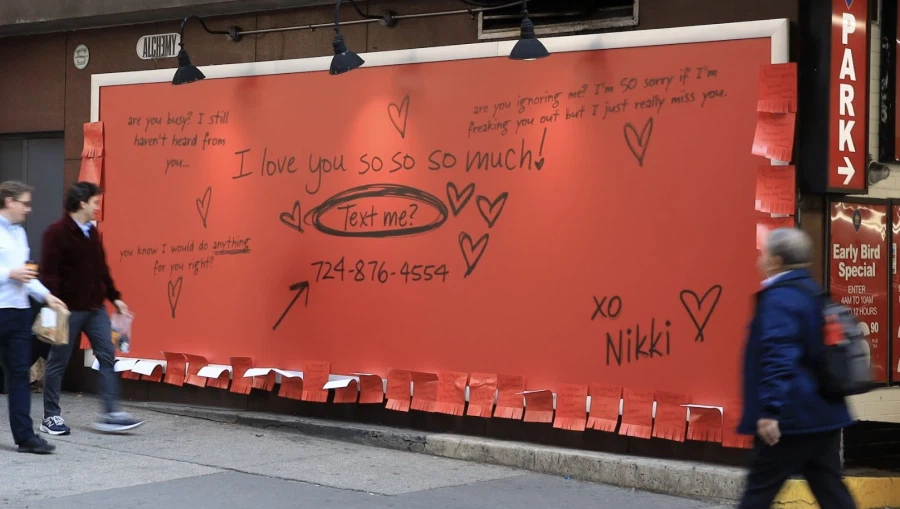 ALCHEMY
are you busy? I still
haven't heard from
you...
are you ignoring me? I'm SO sorry if I'm
freaking you out but I just really miss you.
I love you so so so much!
Text me?
you know I would do anything
for you right?
724-876-4554
XO
Nikki
PARK
Early Bird
Special
ENTER
4AM TO 10AM
12 HOURS
90